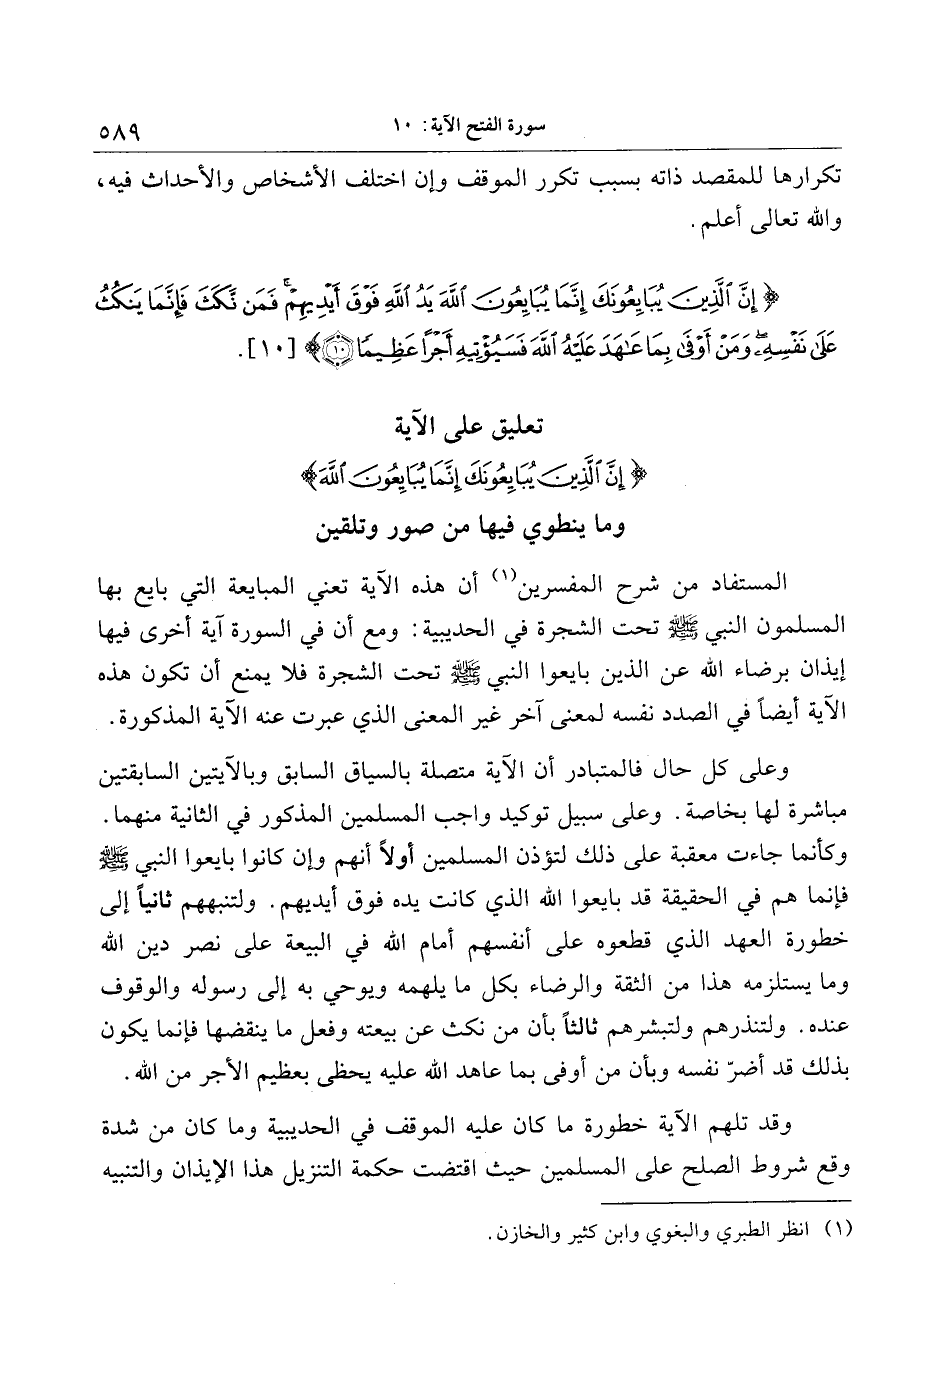 سورة الفتح الآية: ١٠ ٥٨٩
تكرارها للمقصد ذاته بسبب تكرر الموقف وإن اختلف الأشخاص والأحداث فيه،
والله تعالى أعلم.
﴿ إِنَّ ٱلَّذِينَ يُبَايِعُونَكَ إِنَّمَا يُبَايِعُونَ ٱللَّهَ يَدُ ٱللَّهِ فَوْقَ أَيْدِيهِمْۚ فَمَن نَّكَثَ فَإِنَّمَا يَنكُثُ
عَلَىٰ نَفْسِهِۦۖ وَمَنْ أَوْفَىٰ بِمَا عَٰهَدَ عَلَيْهُ ٱللَّهَ فَسَيُؤْتِيهِ أَجْرًا عَظِيمًا ۝١٠﴾ [١٠].
تعليق على الآية
﴿ إِنَّ ٱلَّذِينَ يُبَايِعُونَكَ إِنَّمَا يُبَايِعُونَ ٱللَّهَ﴾
وما ينطوي فيها من صور وتلقين
المستفاد من شرح المفسرين(١) أن هذه الآية تعني المبايعة التي بايع بها
المسلمون النبي ﷺ تحت الشجرة في الحديبية: ومع أن في السورة آية أخرى فيها
إيذان برضاء الله عن الذين بايعوا النبي ﷺ تحت الشجرة فلا يمنع أن تكون هذه
الآية أيضاً في الصدد نفسه لمعنى آخر غير المعنى الذي عبرت عنه الآية المذكورة.
وعلى كل حال فالمتبادر أن الآية متصلة بالسياق السابق وبالآيتين السابقتين
مباشرة لها بخاصة. وعلى سبيل توكيد واجب المسلمين المذكور في الثانية منهما.
وكأنما جاءت معقبة على ذلك لتؤذن المسلمين أولاً أنهم وإن كانوا بايعوا النبي ﷺ
فإنما هم في الحقيقة قد بايعوا الله الذي كانت يده فوق أيديهم. ولتنبههم ثانياً إلى
خطورة العهد الذي قطعوه على أنفسهم أمام الله في البيعة على نصر دين الله
وما يستلزمه هذا من الثقة والرضاء بكل ما يلهمه ويوحي به إلى رسوله والوقوف
عنده. ولتنذرهم ولتبشرهم ثالثاً بأن من نكث عن بيعته وفعل ما ينقضها فإنما يكون
بذلك قد أضرّ نفسه وبأن من أوفى بما عاهد الله عليه يحظى بعظيم الأجر من الله.
وقد تلهم الآية خطورة ما كان عليه الموقف في الحديبية وما كان من شدة
وقع شروط الصلح على المسلمين حيث اقتضت حكمة التنزيل هذا الإيذان والتنبيه
(١) انظر الطبري والبغوي وابن كثير والخازن.